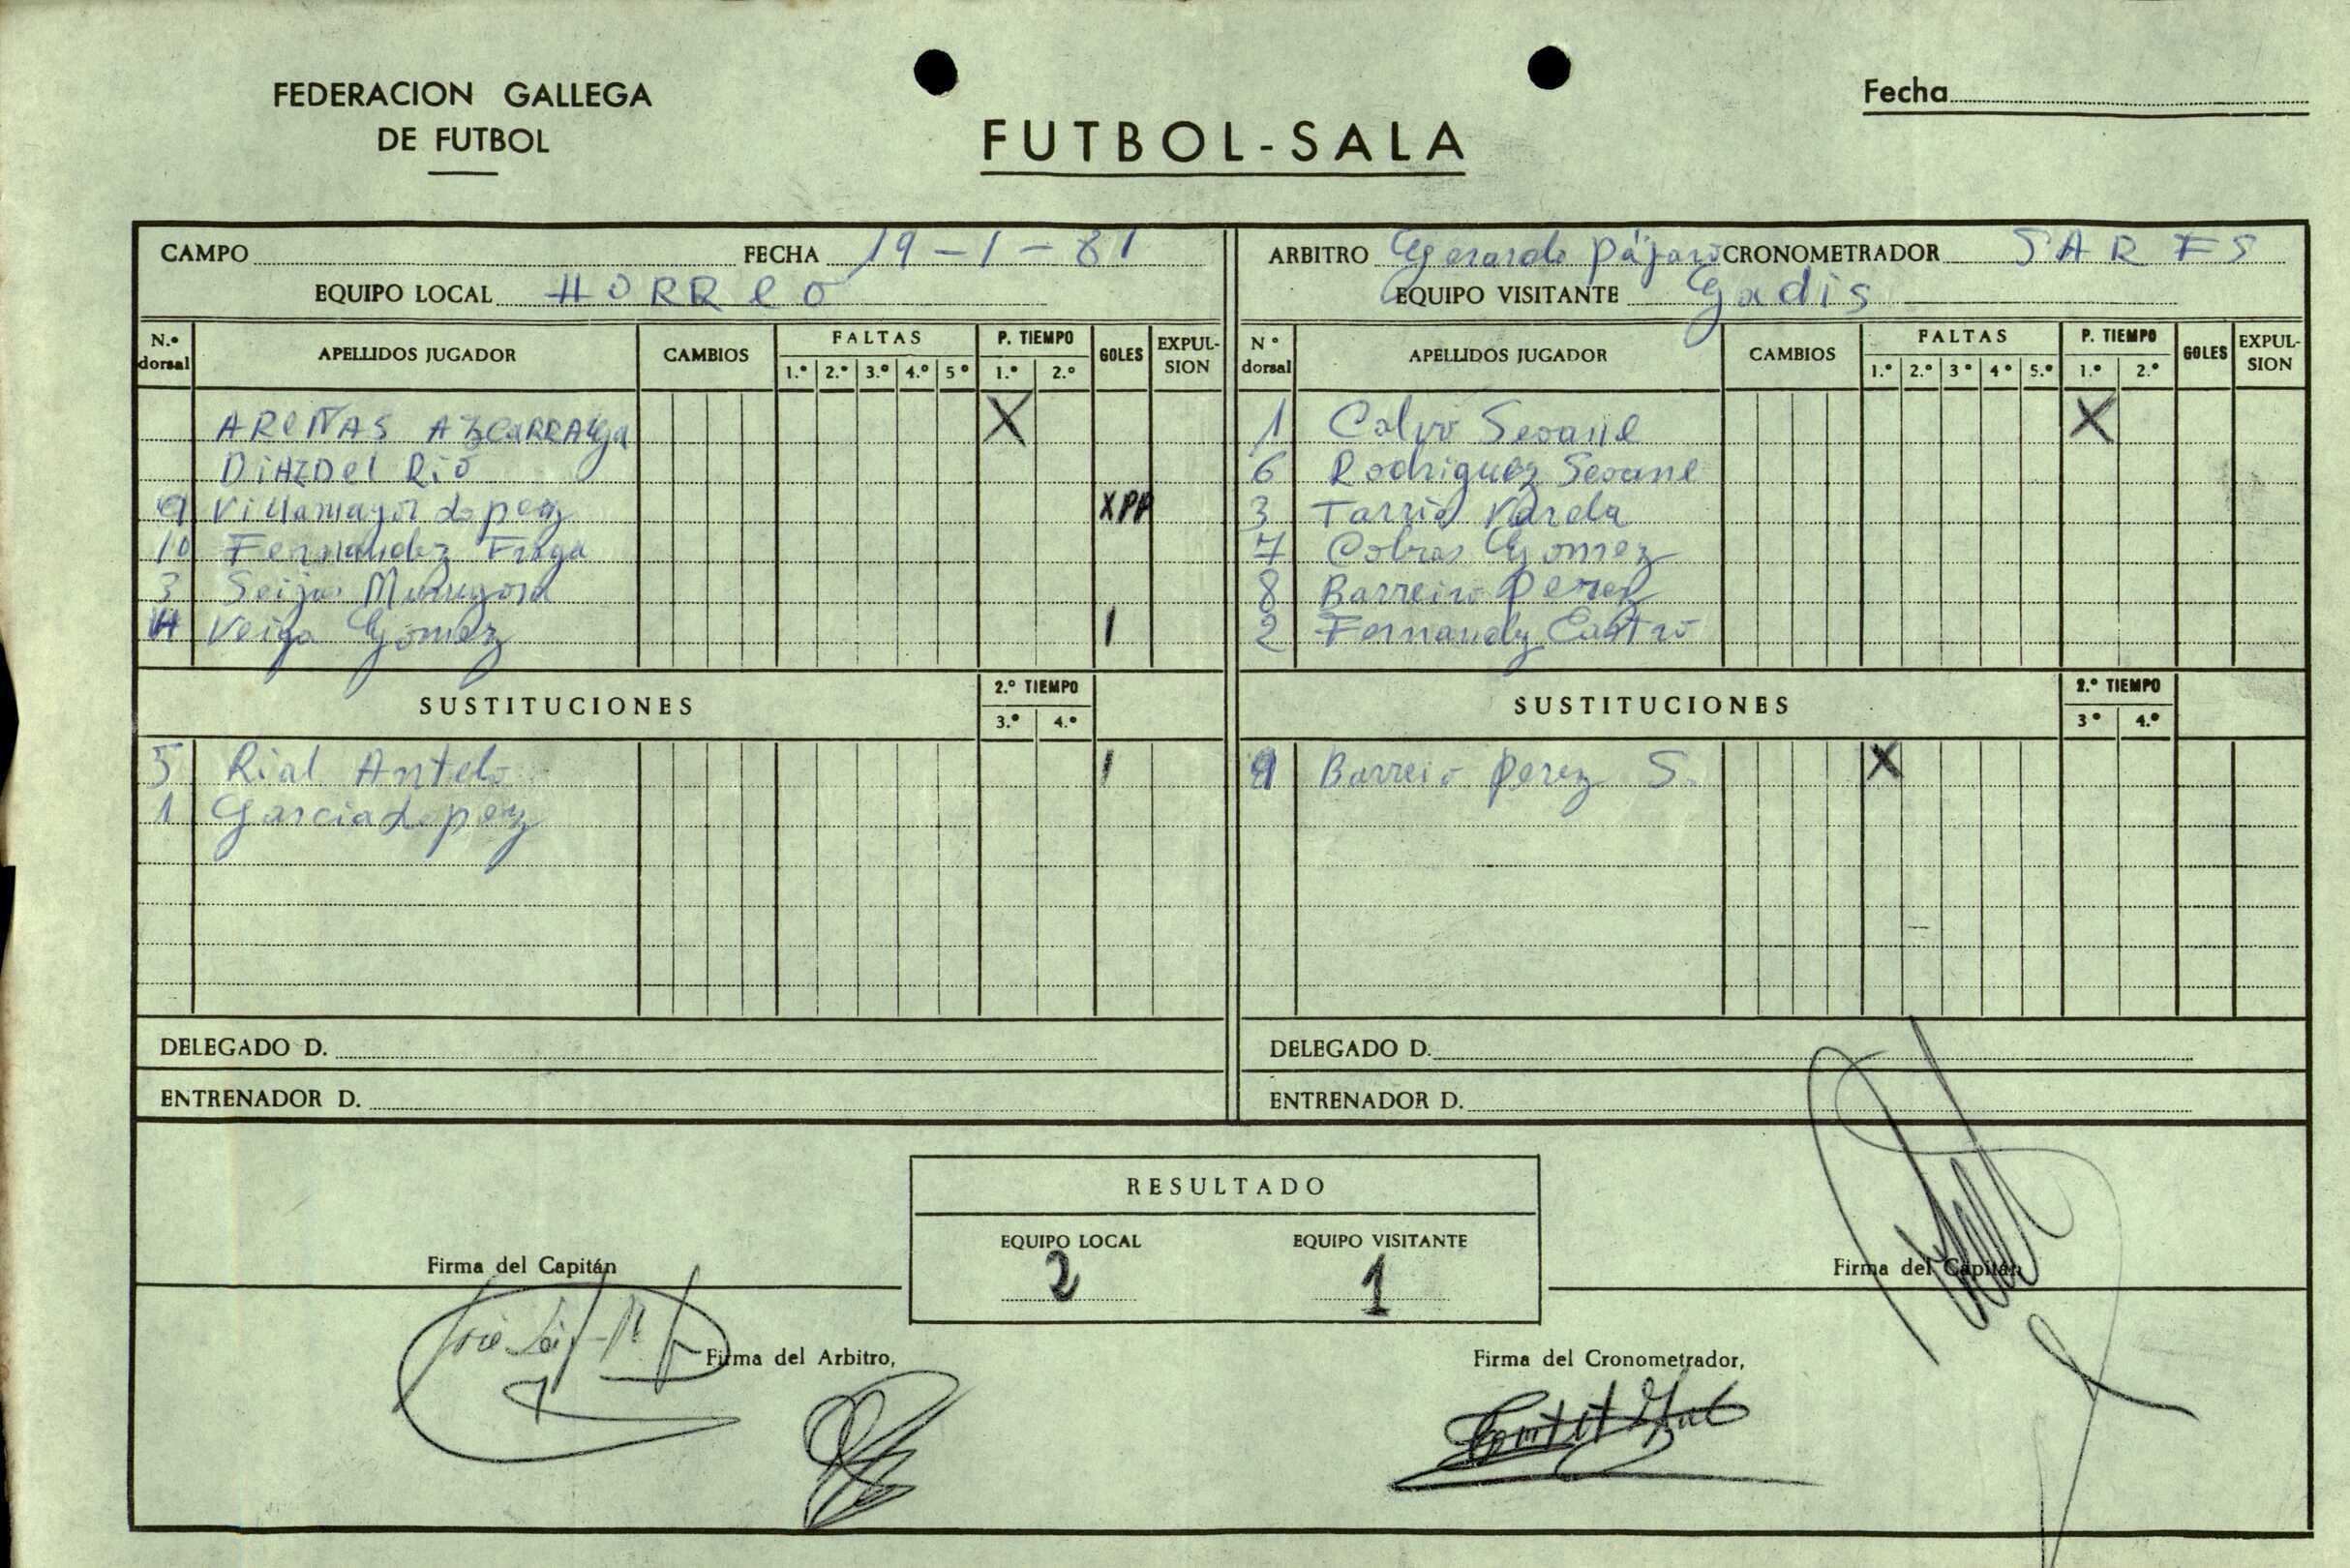 FEDERACION GALLEGA
DE FUTBOL
FUTBOL-SALA
Fecha
CAMPO FECHA 19-1-81
EQUIPO LOCAL HORREO
ARBITRO Gerardo Pájaro CRONOMETRADOR SAR FS
EQUIPO VISITANTE Gadis
N.º dorsal APELLIDOS JUGADOR CAMBIOS FALTAS 1.º 2.º 3.º 4.º 5º P. TIEMPO 1.º 2.º GOLES EXPULSION
ARENAS AZCARRAGA X
DIAZ DEL RIO
9 Villamayor Lopez XPP
10 Fernandez Fraga
3 Seijas
Veiga Gomez 1
SUSTITUCIONES 2.º TIEMPO 3.º 4.º
5 Rial Antelo 1
1 Garcia Lopez
DELEGADO D.
ENTRENADOR D.
N º dorsal APELLIDOS JUGADOR CAMBIOS FALTAS 1.º 2.º 3º 4º 5.º P. TIEMPO 1.º 2.º GOLES EXPULSION
1 Calvo Seoane X
6 Rodriguez Seoane
3 Tarrio Varela
7 Cobas Gomez
8 Barreiro Perez
2 Fernandez Castro
SUSTITUCIONES 2.º TIEMPO 3º 4.º
9 Barreio Perez S. X
DELEGADO D.
ENTRENADOR D.
RESULTADO
EQUIPO LOCAL EQUIPO VISITANTE
2 1
Firma del Capitán
Firma del Capitán
Firma del Arbitro,
Firma del Cronometrador,